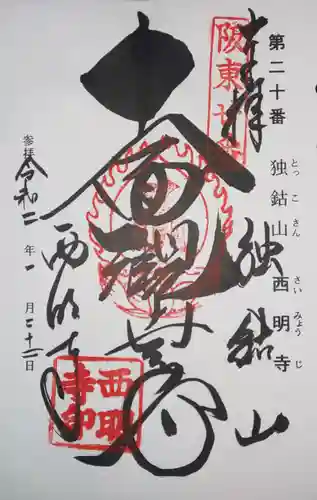 第二十番 独鈷山 西明寺
とっこさん さいみょうじ
奉拝
独鈷山
阪東廿番
十一面観世音
西明寺
西明寺印
参拝 令和二年一月二十二日